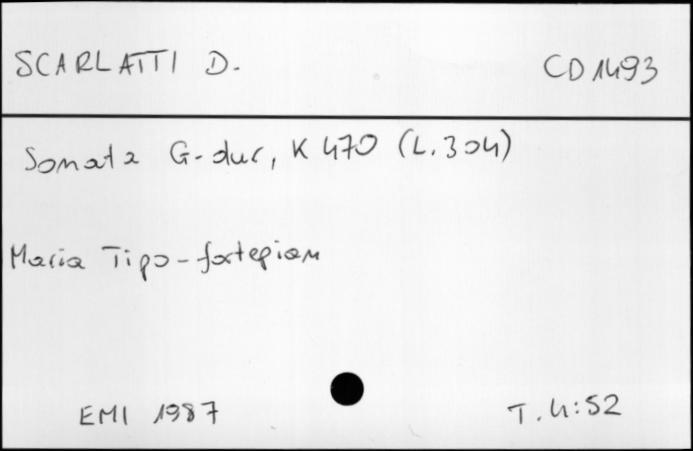 SCARLATTI D. CD 1493
Sonata G-dur, K 470 (L.304)
Maria Tipo - fortepian
EMI 1987 T. 4:52